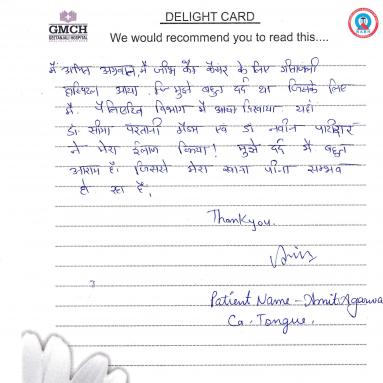 GMCH
GEETANJALI HOSPITAL
DELIGHT CARD
We would recommend you to read this....
NABH
मैं अमित अग्रवाल, मैं जीभ का कैंसर के लिए गीतांजली
हॉस्पिटल आया. मुझे बहुत दर्द था जिसके लिए
मैं. पेलिएटिव विभाग में आया दिखाया. यहां
डॉ सीमा परतानी मैडम एवं डॉ नवीन पाटीदार
ने मेरा ईलाज किया! मुझे दर्द में बहुत
आराम है। जिससे मेरा खाना पीना सम्भव
हो रहा है,
Thankyou.
Patient Name - Amit Agarwa
Ca. Tongue.